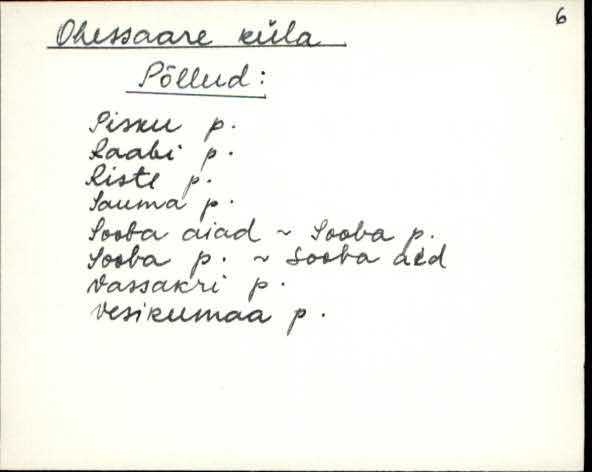 6
Ohessaare küla
Põllud:
Pisku p.
Raabi p.
Riste p.
Sauma p.
Sooba aiad ~ Sooba p.
Sooba p. ~ Sooba aed
Vassakri p.
Vesikumaa p.